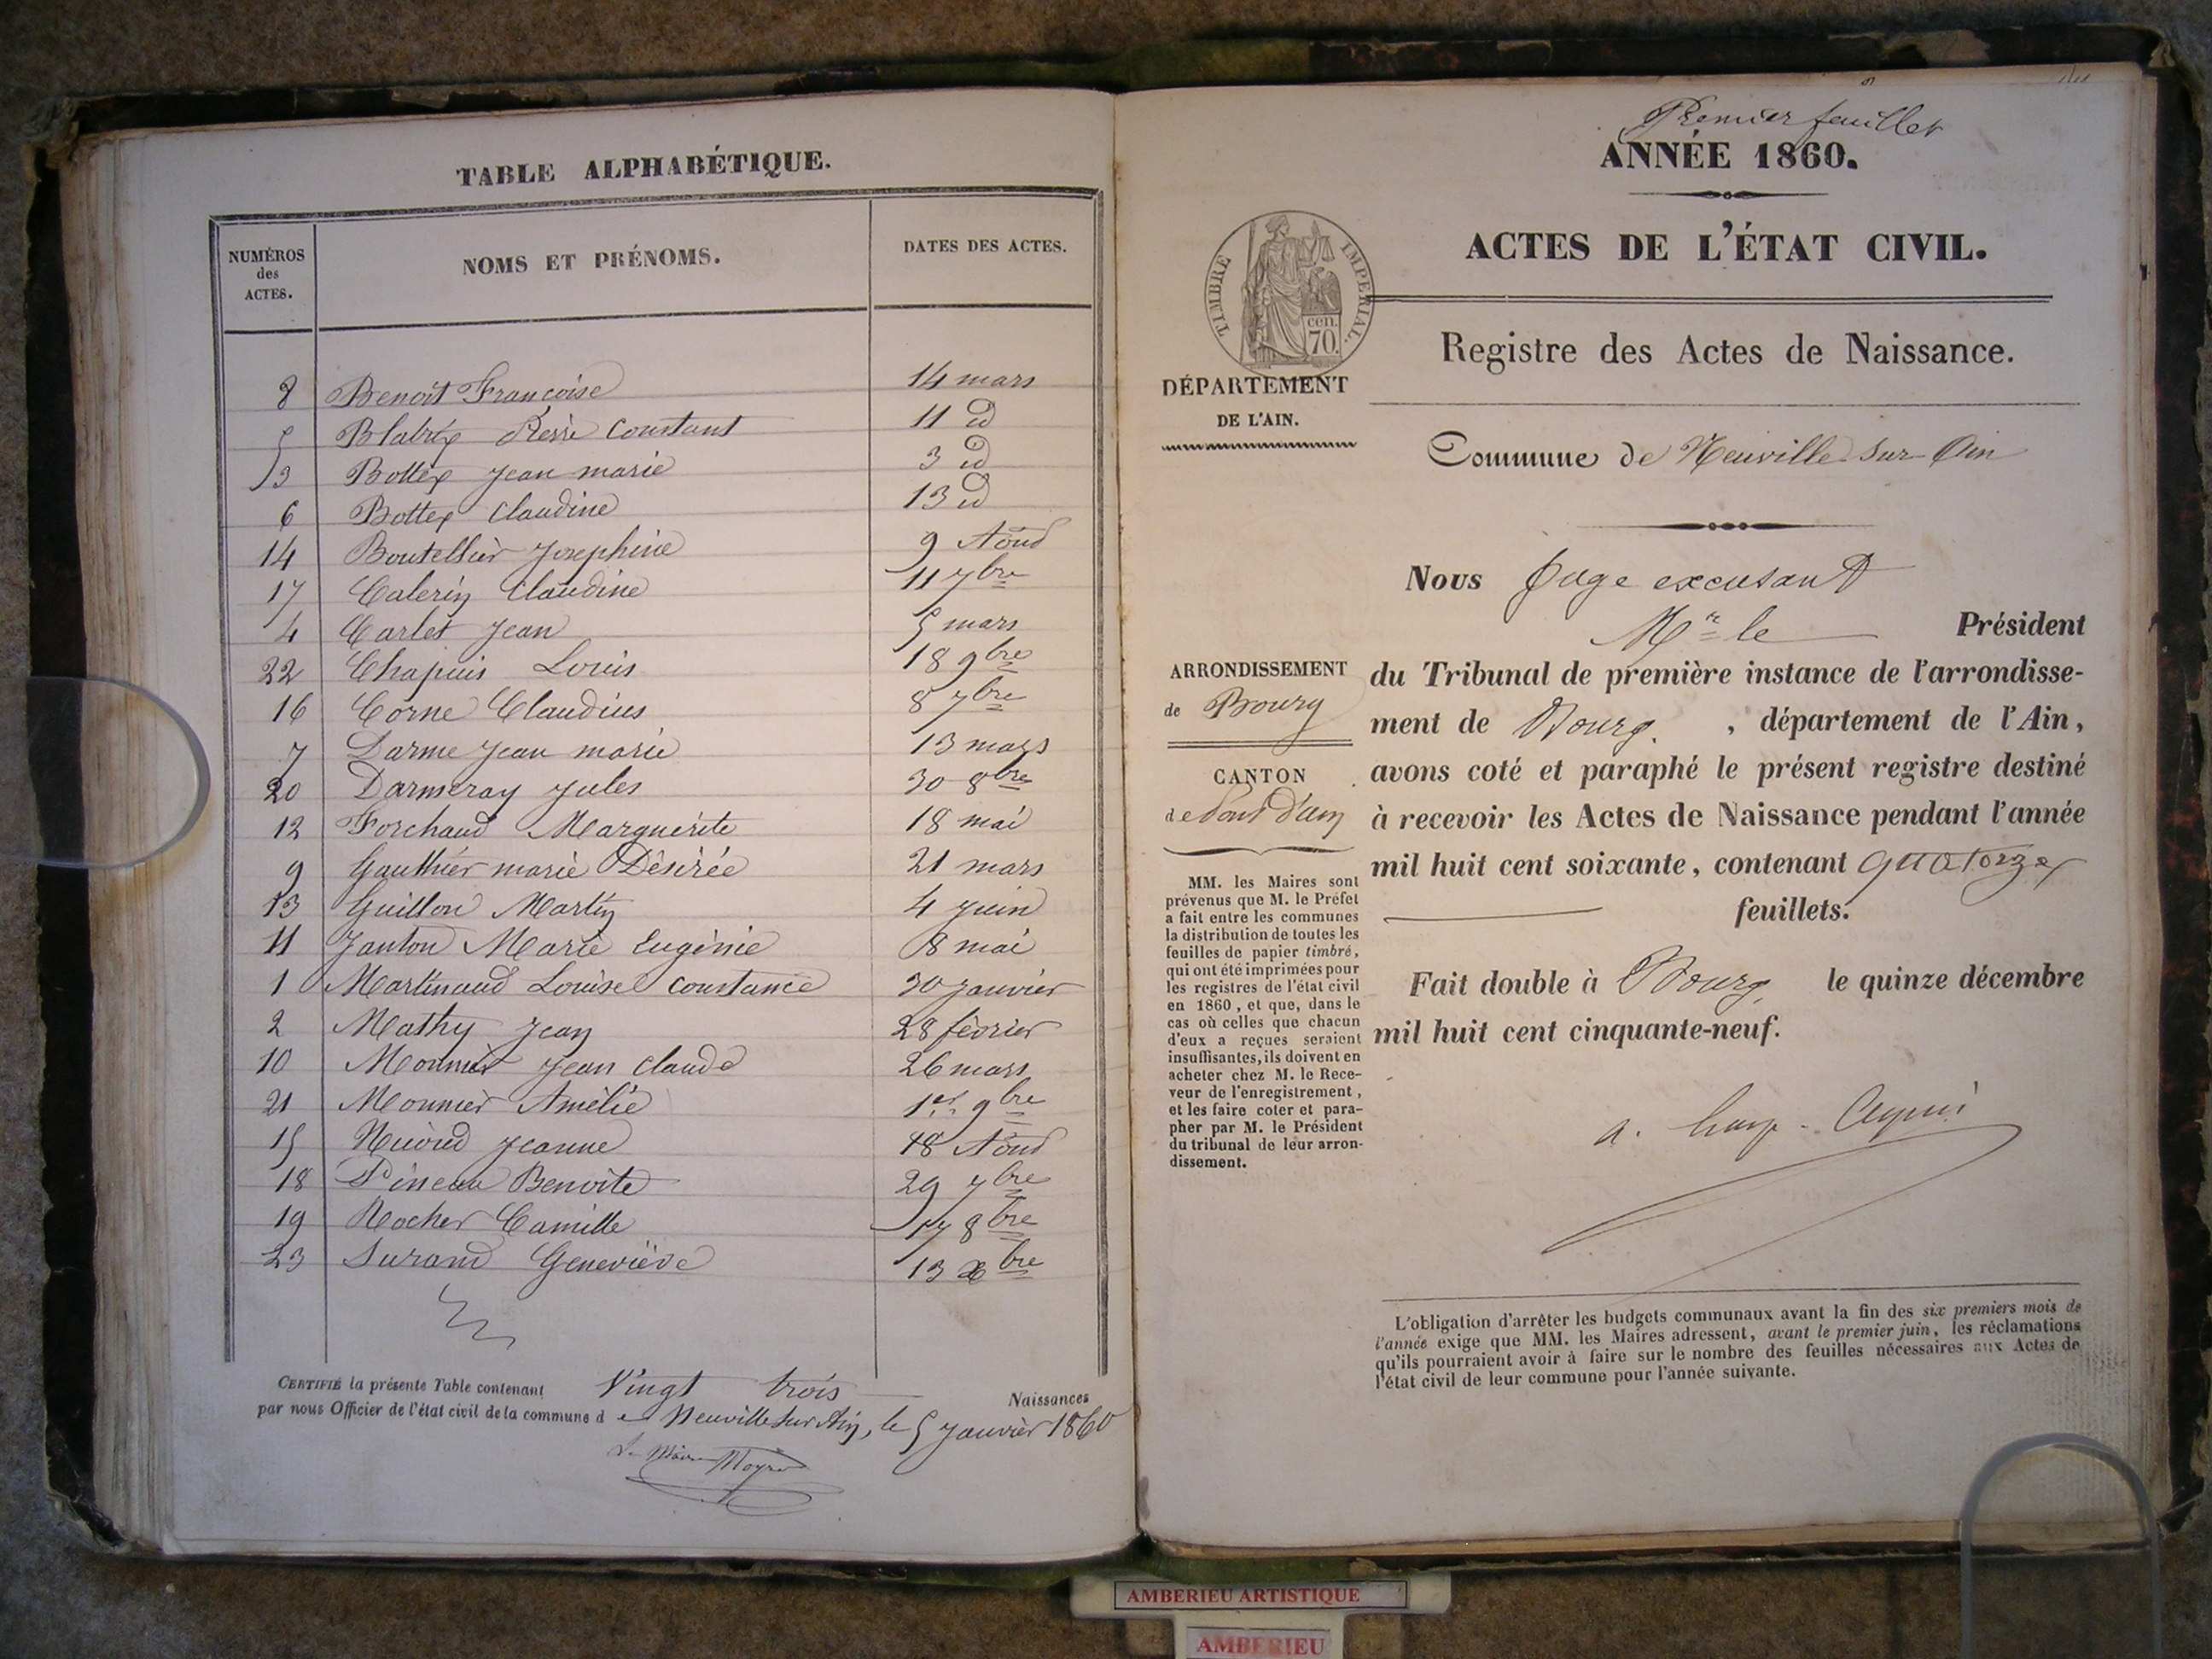 TABLE ALPHABÉTIQUE.
NUMÉROS des ACTES. NOMS ET PRÉNOMS. DATES DES ACTES.
8 Benoît Françoise 14 mars
5 Blatrix Constant 11 id
3 Bottex Jean marie 3 id
6 Bottex Claudine 13 id
14 Boutellier Josephine 9 Aôud
17 Calerin Claudine 11 7bre
4 Carlet Jean 5 mars
22 Chapuis Louis 18 9bre
16 Corne Claudius 8 7bre
7 Darme Jean marie 13 mars
20 Darmeray Jules 30 8bre
12 Forchaud Marguerite 18 mai
9 Gauthier marie Désirée 21 mars
13 Guillon Martin 4 juin
11 Janton Marie Eugénie 8 mai
1 Martinaud Louise Constance 30 janvier
2 Mathy Jean 28 février
10 Monnier Jean Claude 26 mars
21 Monnier Amélie 1er 9bre
15 Jeanne 18 Aôud
18 Pineau Benoite 29 7bre
19 Rocher Camille 17 8bre
23 Surand Geneviève 13 xbre
CERTIFIÉ la présente Table contenant Vingt trois Naissances
par nous Officier de l'état civil de la commune de Neuville sur Ain, le 5 Janvier 1860
Le Maire
Premier feuillet
ANNÉE 1860.
ACTES DE L'ÉTAT CIVIL.
TIMBRE IMPERIAL.
cen. 70.
Registre des Actes de Naissance.
DÉPARTEMENT
DE L'AIN.
Commune de Neuville sur Ain
Nous Juge excusant
Mr le Président
du Tribunal de première instance de l'arrondisse-
ment de Bourg. , département de l'Ain,
avons coté et paraphé le présent registre destiné
à recevoir les Actes de Naissance pendant l'année
mil huit cent soixante, contenant quatorze
feuillets.
Fait double à Bourg, le quinze décembre
mil huit cent cinquante-neuf.
ARRONDISSEMENT
de Bourg
CANTON
de Pont d'ain
MM. les Maires sont
prévenus que M. le Préfet
a fait entre les communes
la distribution de toutes les
feuilles de papier timbré,
qui ont été imprimées pour
les registres de l'état civil
en 1860, et que, dans le
cas où celles que chacun
d'eux a reçues seraient
insuffisantes, ils doivent en
acheter chez M. le Rece-
veur de l'enregistrement,
et les faire coter et para-
pher par M. le Président
du tribunal de leur arron-
dissement.
L'obligation d'arrêter les budgets communaux avant la fin des six premiers mois de
l'année exige que MM. les Maires adressent, avant le premier juin, les réclamations
qu'ils pourraient avoir à faire sur le nombre des feuilles nécessaires aux Actes de
l'état civil de leur commune pour l'année suivante.
AMBERIEU ARTISTIQUE
AMBERIEU